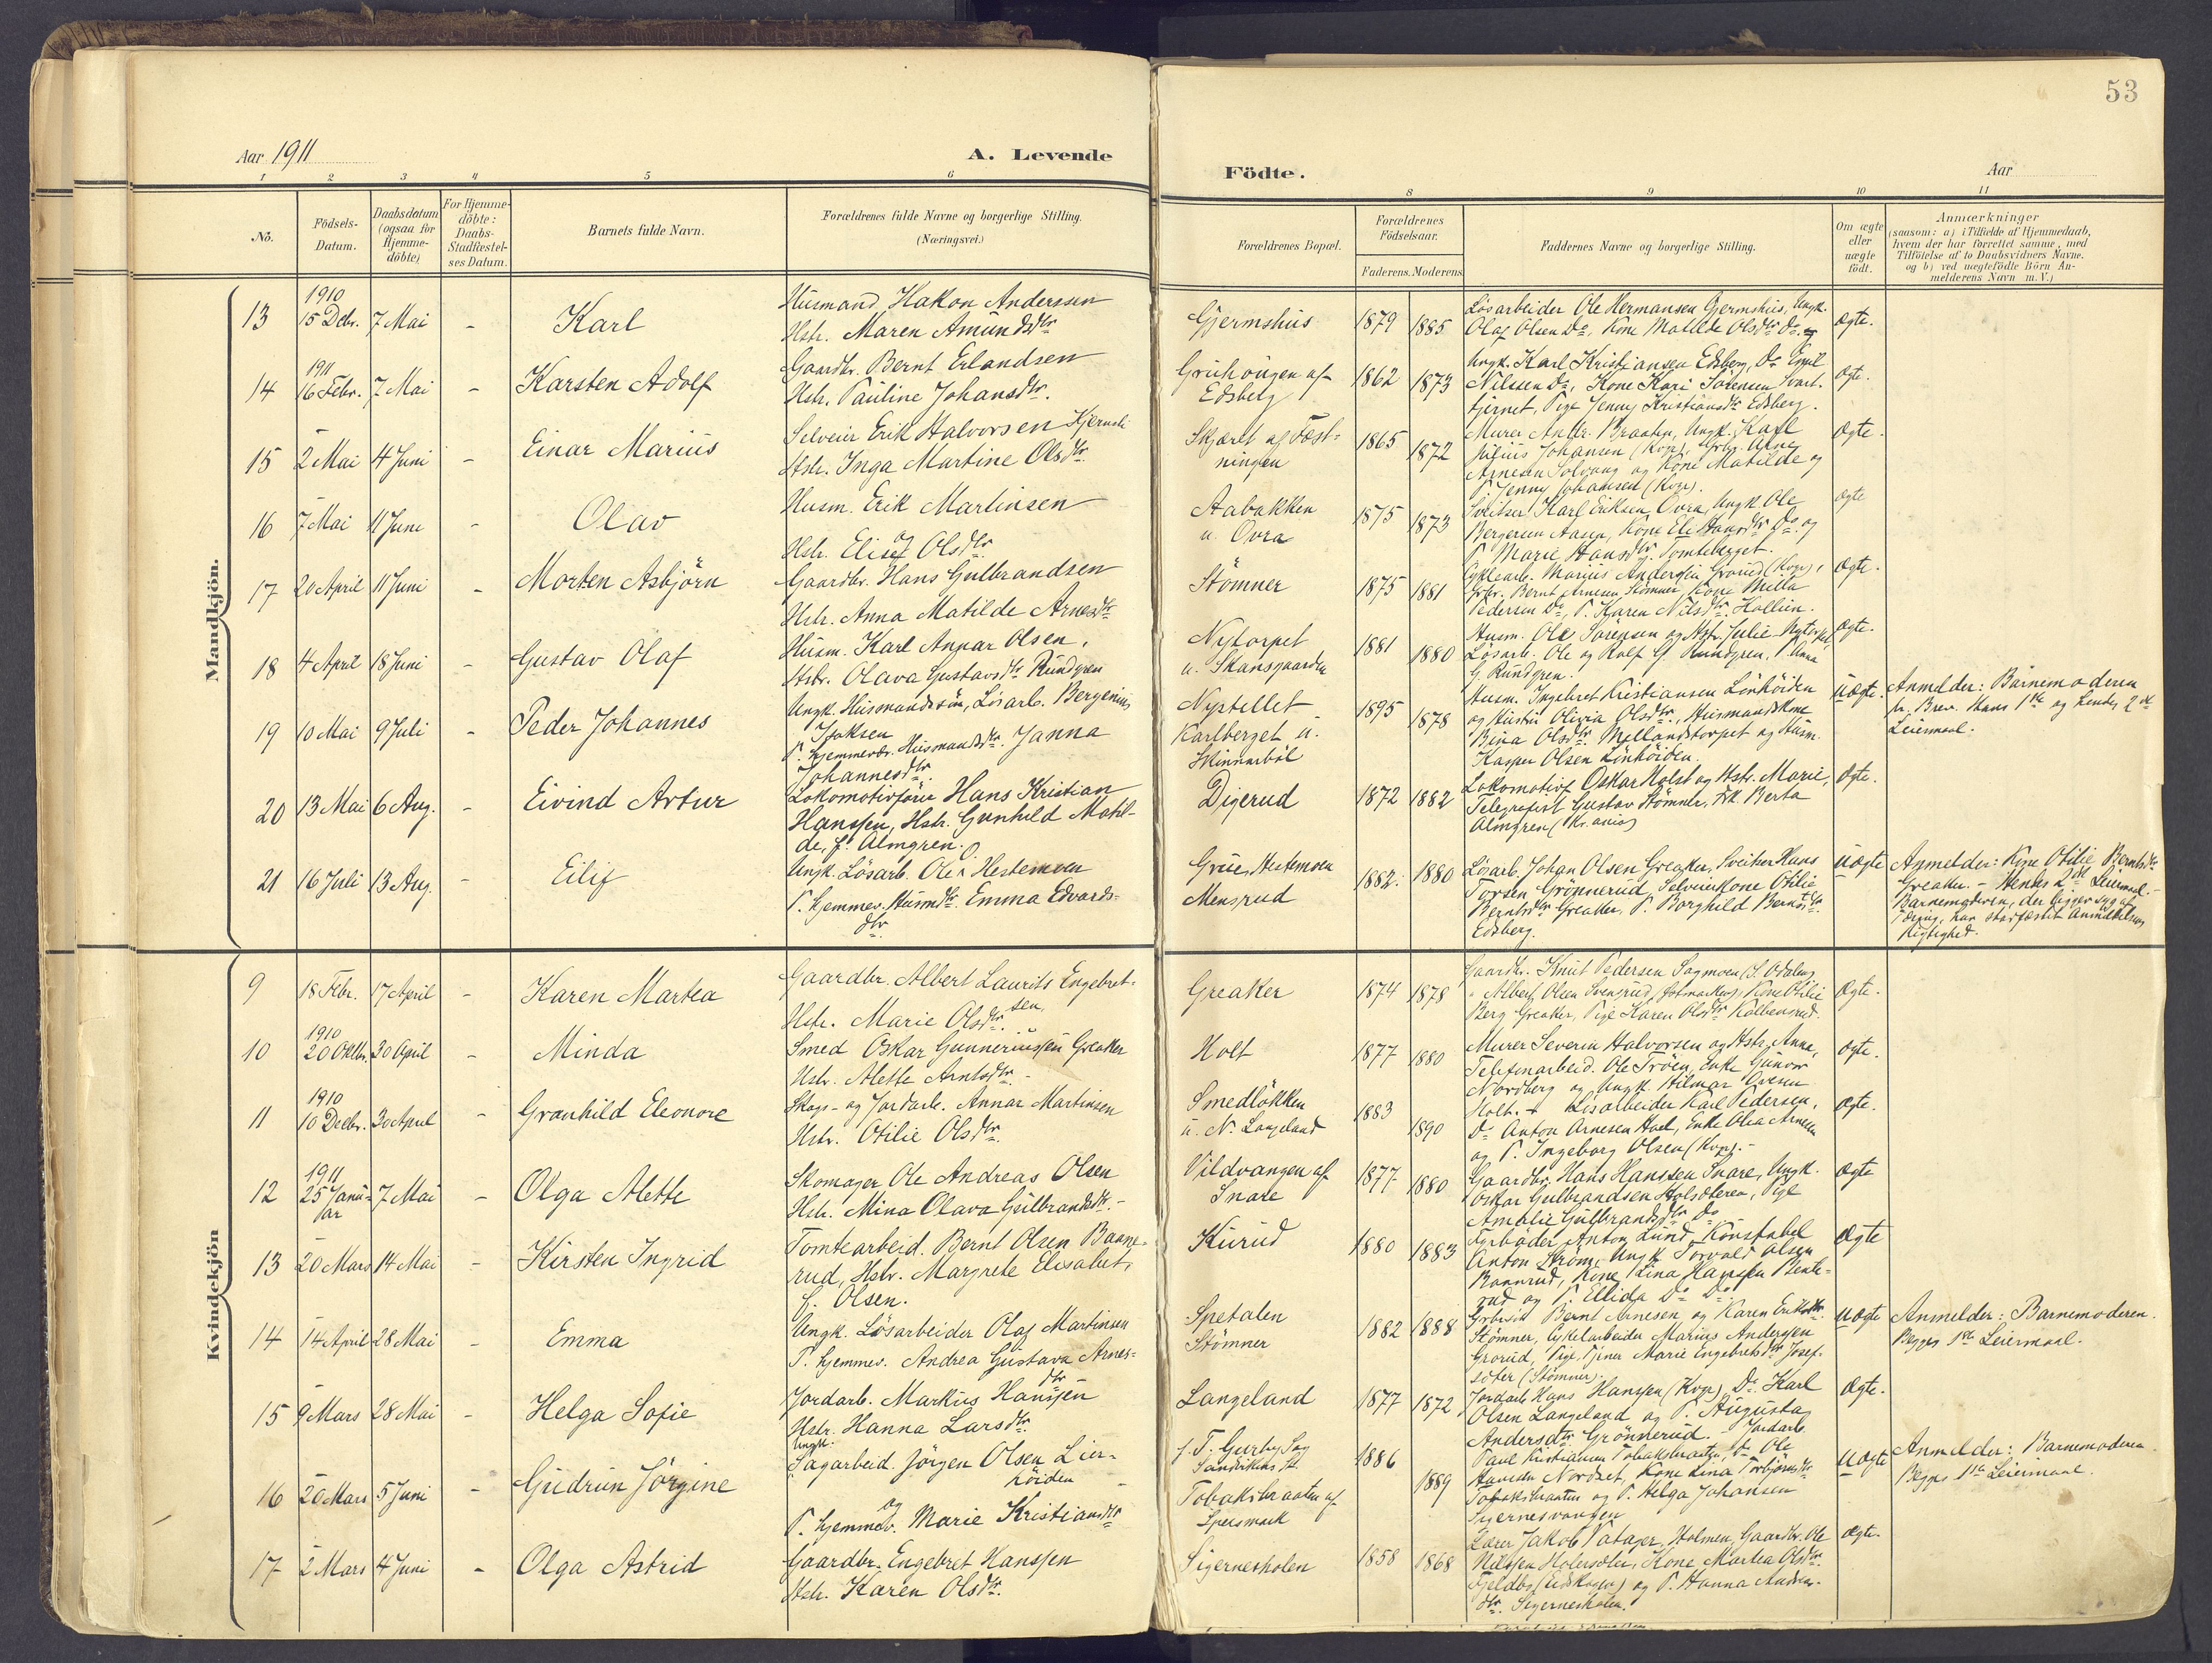 53
Aar 1911
A. Levende
Födte.
Aar
1 2 3 4 5 6 8 9 10 11
No.
Födsels-
Datum.
Daabsdatum
(ogsaa for
Hjemme-
döbte)
For Hjemme-
döbte:
Daabs-
Stadfæstel-
ses Datum.
Barnets fulde Navn.
Forældrenes fulde Navne og borgerlige Stilling.
(Næringsvei.)
Forældrenes Bopæl.
Forældrenes
Födselsaar.
Faderens. Moderens.
Faddernes Navne og borgerlige Stilling.
Om ægte
eller
uægte
födt.
Anmærkninger
(saasom: a) i Tilfælde af Hjemmedaab,
hvem der har forrettet samme, med
Tilföielse af to Daabsvidners Navne.
og b) ved uægtefödte Börn An-
melderens Navn m. V.)
Mandkjön.
13
1910
15 Debr.
7 Mai
-
Karl
Husmand Hakon Anderssen
Hstr. Maren Amundsdtr
Gjermshus
1879
1885
Lösarbeider Ole Hermansen Gjermshus, Ungk.
Olaf Olsen Do, Kone Matilde Olsdtr Do og
ægte.
14
1911
16 Febr.
7 Mai
-
Karsten Adolf
Gaardbr. Bernt Erlandsen
Hstr. Pauline Johansdtr.
Gruhougen af
Edsberg
1862
1873
Ungk. Karl Kristiansen Edsberg, Do Emil
Nilssen Do, Kone Kari Sörensen Svart-
tjernet, Pige Jenny Kristiansdtr Edsberg.
ægte.
15
2 Mai
4 Juni
-
Einar Marius
Selveier Erik Halvorsen
Hstr. Inga Martine Olsdtr
Skjæret af Fæst-
ningen
1865
1872
Murer Andr. Braaten, Ungk. Karl
Julius Johansen (Kvgr), Grbr. Arne
Arnesen Solvang og Kone Matilde og
P. Jenny Johansen (Kvgr).
ægte.
16
7 Mai
11 Juni
-
Olav
Husm. Erik Martinsen
og
Hstr. Elise Olsdtr
Aabakken
u. Ovra
1875
1873
Sveitser Karl Eriksen Ovra, Ungk. Ole
Bergersen Aasen, Kone Eli Hansdtr Do og
P. Marie Hansdtr Tomteberget.
ægte
17
20 April
11 Juni
-
Morten Asbjörn
Gaardbr. Hans Gulbrandsen
Hstr. Anna Matilde Arnesdtr
Stömner
1875
1881
Cyklearb. Marius Andersen Grorud (Kvgr),
Grbr. Bernt Arnesen Stömner, Kone Milla
Pedersen Do, P. Karen Nilsdtr. Hollien.
ægte.
18
4 April
18 Juni
-
Gustav Olaf
Husm. Karl Annar Olsen,
Hstr. Olava Gustavsdtr Rundgren
Nytorpet
u. Skansgaarden
1881
1880
Husm. Ole Sörensen og Hstr. Julie Nytorpet,
Lösarb. Ole og Rolf G. Rundgren, P. Anna
G. Rundgren.
ægte.
19
10 Mai
9 Juli
-
Peder Johannes
Ungk. Husmandssön, Lösarb. Bergenius
Isaksen
P. hjemmevær. Husmandsdtr. Janna
Johannesdtr.
Nystellet
Karlberget u.
Skinnarböl
1895
1878
Husm. Ingebret Kristiansen Lönhöiden
og Hustru Olivia Olsdtr., Husmandskone
Bina Olsdtr. Mellandstorpet og Husm.
Kasper Olsen Lönhöiden.
uægte.
Anmelder: Barnemoderen
pr. Brev. Hans 1ste og hendes 2det
Leiermaal.
20
13 Mai
6 Aug.
-
Eivind Artur
Lokomotivförer Hans Kristian
Hanssen, Hstr. Gunhild Matil-
de, f. Almgren.
Digerud
1872
1882
Lokomotivf. Oskar Holst og Hstr. Marie,
Telegrafist Gustav Stömner, Frk. Berta
Almgren (Kr.ania)
ægte.
21
16 Juli
13 Aug.
-
Eilif
Ungk. Lösarb. Ole O. Hestemoen
P. hjemmev. Husmdtr. Emma Edvards-
dtr.
Grue, Hestemoen
Mensrud
1882.
1880
Lösarb. Johan Olsen Greaker, Sveitser Hans
Torsen Grönnerud, Selveierkone Otilie
Berntsdtr Greaker, P. Borghild Berntsdtr.
Edsberg.
uægte
Anmelder: Kone Otilie Berntsdtr
Greaker. - Hendes 2det Leiermaal.-
Barnemoderen, der ligger syg af
Tæring, har stadfæstet Anmeldelsens
Rigtighed.
Kvindekjön
9
18 Febr.
17 April
-
Karen Martea
Gaardbr. Albert Laurits Engebret-
sen,
Hstr. Marie Olsdtr.
Greaker
1874
1878
Gaardbr. Knut Pedersen Sagmoen (S. Odalen)
Albert Olsen Svensrud, Kone Otilie
Berg Greaker, Pige Karen Olsdtr Kolbensrud.
ægte.
10
1910
20 Oktbr.
30 April
-
Minda
Smed Oskar Gunneriussen Greaker
Hstr. Alette Arntsdtr.-
Holt
1877
1880
Murer Severin Halvorsen og Hstr. Anna,
Telefonarbeid. Ole Tröen, Enke Gunvor
Nordberg og Ungk. Hilmar Ovesen
Holt.
ægte.
11
1910
10 Decbr.
30 April
-
Granhild Eleonore
Skogs- og Jordarb. Annar Martinsen
Hstr. Otilie Olsdtr.
Smedlökken
u. N. Langeland
1883
1890
Lösarbeider Karl Pedersen,
Do Anton Arnesen Hoel, Enke Olea Arnesen
og P. Ingeborg Olsen (Kvgr).-
ægte.
12
1911
25 Janu-
ar
7 Mai
-
Olga Alette
Skomager Ole Andreas Olsen
Hstr. Mina Olava Gulbrandsdtr.-
Vildvangen af
Snare
1877
1880
Gaardbr. Hans Hanssen Snare, Ungk.
Oskar Gulbrandsen Holsæteren, Pige
Amalie Gulbrandsdtr Do
ægte
13
20 Mars
14 Mai
-
Kirsten Ingrid
Tomtearbeid. Bernt Olsen Baane-
rud, Hstr. Margrete Elisabet,
f. Olsen.
Kurud
1880
1883
Fyrböder Anton Lund, Konstabel
Anton Ström, Ungk. Torvald Olsen
Bannrud, Kone Lina Hanssen Bente-
rud og P. Ellida Do Do
ægte
14
14 April
28 Mai
-
Emma
Ungk. Lösarbeider Olaf Martinsen
P. hjemmev. Andrea Gustava Arnes-
dtr
Spetalen
Stömner
1882
1888
Bernt Arnesen og Karen Eriksdtr
Stömner, Cykelarbeider Marius Andersen
Grorud, Pige, Tjener Marie Engebretsdtr Josef-
söter (Stömner).
uægte
Anmelder: Barnemoderen.
Begges 1ste Leiermaal.
15
9 Mars
28 Mai
-
Helga Sofie
Jordarb. Markus Hanssen
Hstr. Hanna Larsdtr.
Langeland
1877
1872
Jordarb. Hans Hanssen (Kvgr), Do. Karl
Olsen Langeland og P. Augusta
Andersdtr Grönnerud.
ægte.
16
20 Mars
5 Juni
-
Gudrun Jörgine
Ungk.
Sagarbeid. Jörgen Olsen Lier-
höiden
og
P. hjemmev. Marie Kristiansdtr
Tobaksbraaten af
Spersmark
1886
1889
Jordarb.
Paul Kristiansen Tobaksbraaten, Do Ole
Hansen Nordset, Kone Lina Torbjörnsdtr
Tobaksbraaten og P. Helga Johansen
Sigernesvangen
uægte
Anmelder: Barnemoderen.
Begges 1ste Leiermaal.
17
2 Mars
4 Juni
-
Olga Astrid
Gaardbr. Engebret Hanssen
Hstr. Karen Olsdtr.
Sigernesholen
1858
1868
Lærer Jakob Holmen, Gaardbr. Ole
Nilssen Holersæter, Kone Martea Olsdtr
Fjeldby (Eidskogen) og P. Hanna Andreas-
dtr. Sigernesholen.
ægte.